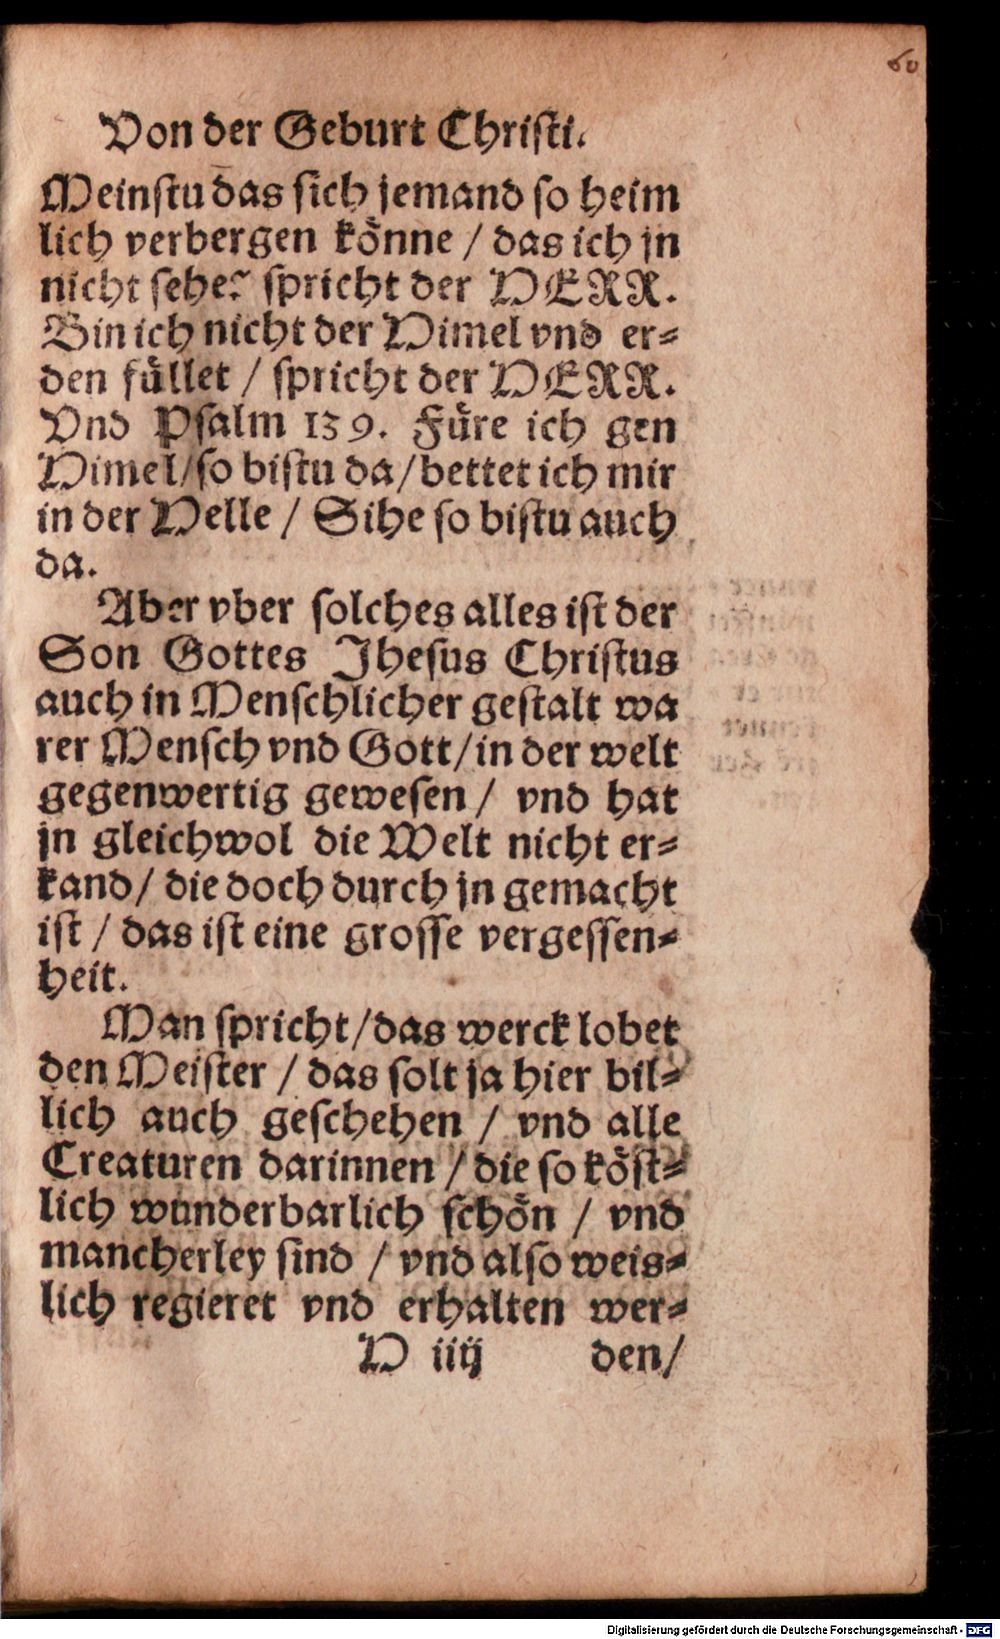 60
Von der Geburt Christi.
Meinstu das sich jemand so heim
lich verbergen könne / das ich jn
nicht sehe? spricht der HERR.
Bin ich nicht der Himel vnd er-
den füllet / spricht der HERR.
Vnd Psalm 139. Füre ich gen
Himel/so bistu da/bettet ich mir
in der Helle / Sihe so bistu auch
da.
Aber vber solches alles ist der
Son Gottes Jhesus Christus
auch in Menschlicher gestalt wa
rer Mensch vnd Gott/in der welt
gegenwertig gewesen / vnd hat
jn gleichwol die Welt nicht er-
kand/ die doch durch jn gemacht
ist / das ist eine grosse vergessen-
heit.
Man spricht/das werck lobet
den Meister / das solt ja hier bil-
lich auch geschehen / vnd alle
Creaturen darinnen / die so köst-
lich wunderbarlich schön / vnd
mancherley sind / vnd also weis-
lich regieret vnd erhalten wer-
H iiij den/
Digitalisierung gefördert durch die Deutsche Forschungsgemeinschaft - DFG